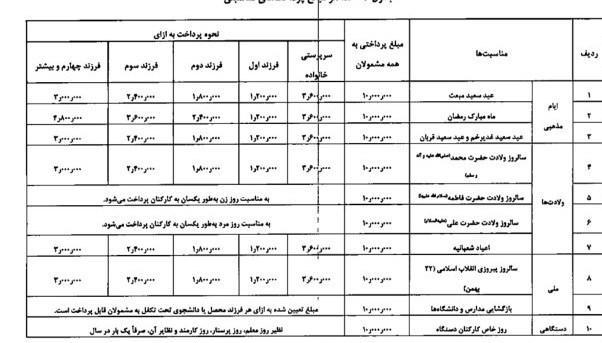 ردیف مناسبت‌ها مبلغ پرداختی به همه مشمولان نحوه پرداخت به ازای
سرپرستی خانواده فرزند اول فرزند دوم فرزند سوم فرزند چهارم و بیشتر
ایام مذهبی
۱ عید سعید مبعث ۱۰ر۰۰۰ر۰۰۰ ۳ر۶۰۰ر۰۰۰ ۱ر۲۰۰ر۰۰۰ ۱ر۸۰۰ر۰۰۰ ۲ر۴۰۰ر۰۰۰ ۳ر۰۰۰ر۰۰۰
۲ ماه مبارک رمضان ۱۰ر۰۰۰ر۰۰۰ ۳ر۶۰۰ر۰۰۰ ۱ر۲۰۰ر۰۰۰ ۲ر۴۰۰ر۰۰۰ ۳ر۶۰۰ر۰۰۰ ۴ر۸۰۰ر۰۰۰
۳ عید سعید غدیرخم و عید سعید قربان ۱۰ر۰۰۰ر۰۰۰ ۳ر۶۰۰ر۰۰۰ ۱ر۲۰۰ر۰۰۰ ۱ر۸۰۰ر۰۰۰ ۲ر۴۰۰ر۰۰۰ ۳ر۰۰۰ر۰۰۰
ولادت‌ها
۴ سالروز ولادت حضرت محمد (صلی‌الله علیه و آله و سلم) ۱۰ر۰۰۰ر۰۰۰ ۳ر۶۰۰ر۰۰۰ ۱ر۲۰۰ر۰۰۰ ۱ر۸۰۰ر۰۰۰ ۲ر۴۰۰ر۰۰۰ ۳ر۰۰۰ر۰۰۰
۵ سالروز ولادت حضرت فاطمه (سلام‌الله علیها) ۱۰ر۰۰۰ر۰۰۰ به مناسبت روز زن به‌طور یکسان به کارکنان پرداخت می‌شود.
۶ سالروز ولادت حضرت علی (علیه‌السلام) ۱۰ر۰۰۰ر۰۰۰ به مناسبت روز مرد به‌طور یکسان به کارکنان پرداخت می‌شود.
۷ اعیاد شعبانیه ۱۰ر۰۰۰ر۰۰۰ ۳ر۶۰۰ر۰۰۰ ۱ر۲۰۰ر۰۰۰ ۱ر۸۰۰ر۰۰۰ ۲ر۴۰۰ر۰۰۰ ۳ر۰۰۰ر۰۰۰
ملی
۸ سالروز پیروزی انقلاب اسلامی (۲۲ بهمن) ۱۰ر۰۰۰ر۰۰۰ ۳ر۶۰۰ر۰۰۰ ۱ر۲۰۰ر۰۰۰ ۱ر۸۰۰ر۰۰۰ ۲ر۴۰۰ر۰۰۰ ۳ر۰۰۰ر۰۰۰
۹ بازگشایی مدارس و دانشگاه‌ها ۱۰ر۰۰۰ر۰۰۰ مبلغ تعیین شده به ازای هر فرزند محصل یا دانشجوی تحت تکفل به مشمولان قابل پرداخت است.
۱۰ دستگاهی روز خاص کارکنان دستگاه ۱۰ر۰۰۰ر۰۰۰ نظیر روز معلم، روز پرستار، روز کارمند و نظایر آن، صرفاً یک بار در سال